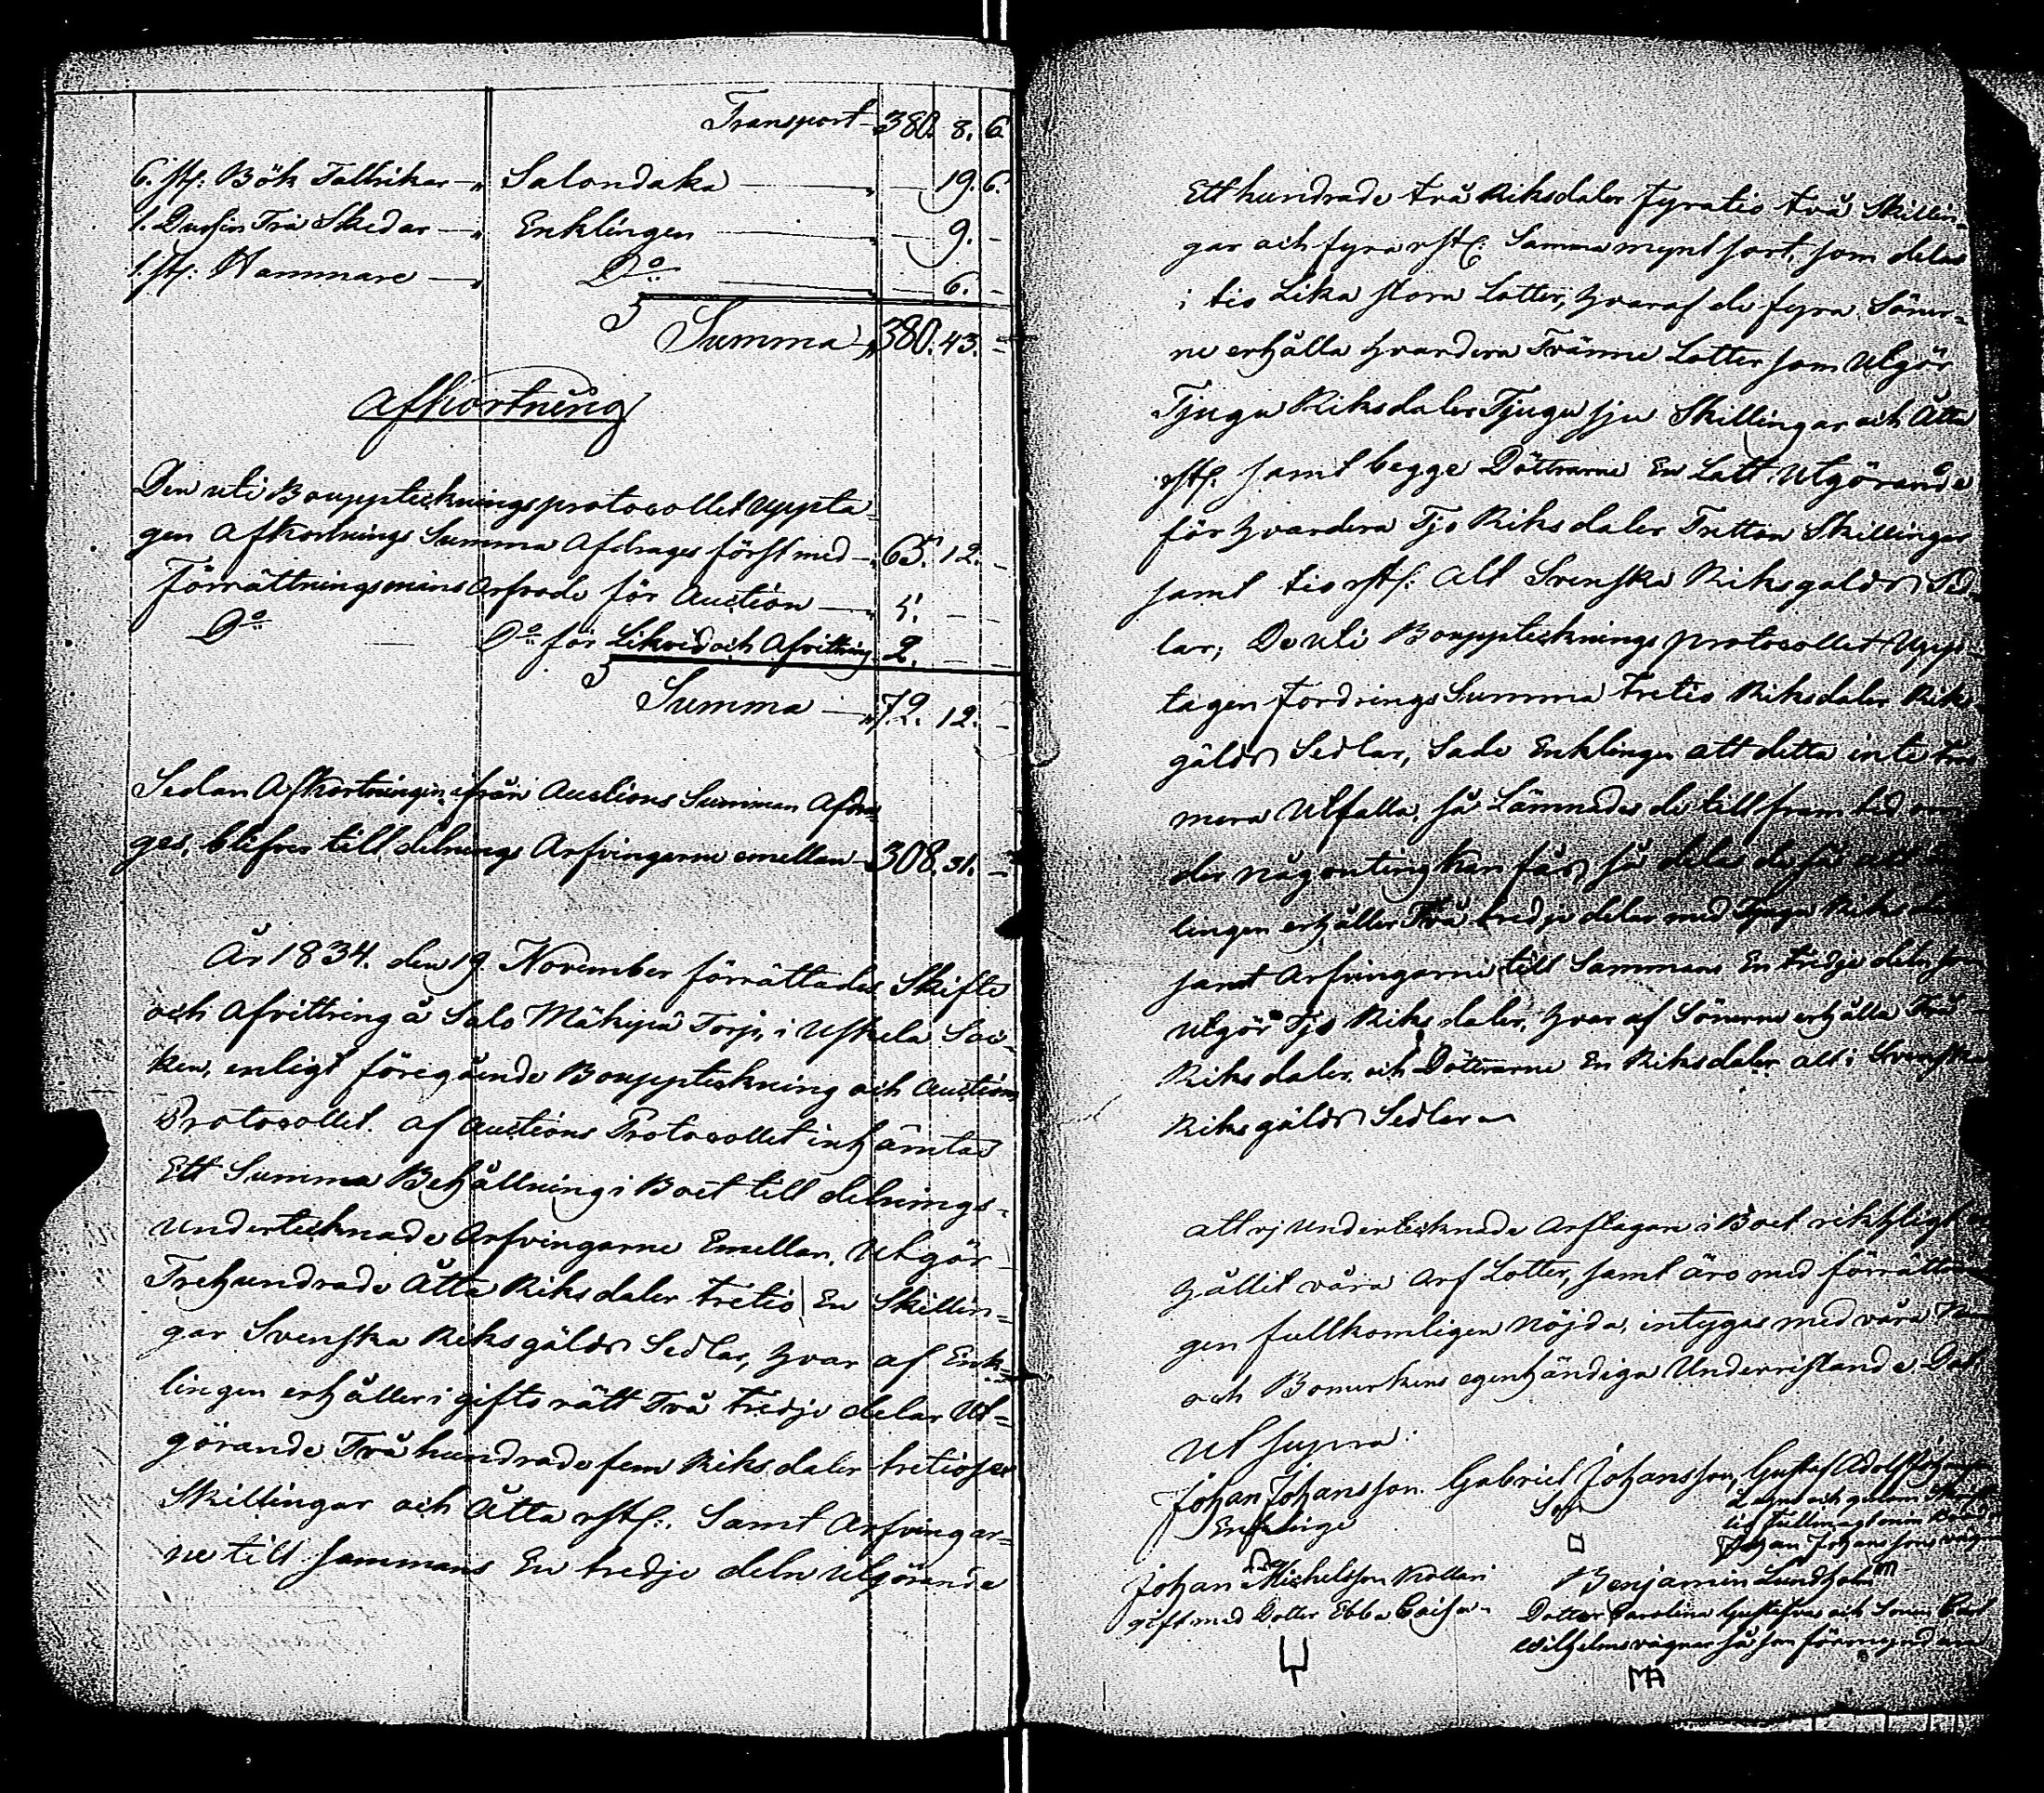 Transport 380. 8. 6.
6. st: Bök Tallrikar Salondaka 19. 6.
1. Dussin Trä Skedar Enklingen 9. -
1. st: Hammare Do 6. -
Summa 380. 43. -
Afkortning
Den uti Bouppteckningsprotocollet uppta-
gen Afkortnings Summa Afdrages först med 65. 12. -
Förrättningsmäns Arfvode för Auction 5. - -
Do Do för Likvid och Afvittring 2. - -
Summa 72. 12. -
Sedan Afkortningen ifrån Auctions Summan Afdra-
ges, blifver till delnings Arfvingarne emellan 308. 31. -
År 1834. den 19. November förrättades Skifte
och Afvittring å Salo Mäkyiä Torp, i Uskela Soc-
ken, enligt föregående Bouppteckning och Auctions
Protocollet. Af Auctions Protocollet inhämtas
Ett Summa Behållning i Boet till delnings-
undertecknade Arfvingarne Emellan, Utgör
Trehundrade Åtta Riksdaler tretio En Skillin-
gar Svenska Riksgälds Sedlar, hvar af Enk-
lingen erhåller i giftorätt Två tredje delar Ut-
görande Två hundrade fem Riksdaler tretiofem
Skillingar och Åtta rst:. Samt Arfvingar-
ne till sammans En tredje deln Utgörande
Ett hundrade två Riksdaler fyratio två Skillin-
gar och fyra rst: Samma myntsort, som delas
i tio Lika stora Lotter, hvaraf de fyra Söner-
ne erhålla hvardera Tvänne Lotter som Utgör
Tjugu Riksdaler Tjugu sju Skillingar och Åtta
rst: samt begge Döttrarne En Lott Utgörande
för hvardera Tjo Riksdaler Tretton Skillingar
samt tio rst: Alt Svenska Riksgälds Sed-
lar; De uti Bouppteckningsprotocollet Upp-
tagen fordrings Summa tretio Riksdaler Riks
gälds Sedlar, Sade Enklingen att detta inte
mera Utfalla, så Lämnades de till framtid
der någonting kan fås, så delas de så att
lingen erhåller Två tredje delar med Tjugu Riksdaler
samt Arfvingarne till Sammans En tredje deln som
Utgör Tjo Riksdaler, hvar af Sönerne erhålla Två
Riksdaler och Döttrarne En Riksdaler alt i Svenska
Riksgälds Sedlar
Att vj undertecknade Arftagare i Boet rikhtligt
hållit våra Arf Lotter, samt äro med förrättnin
gen fullkomligen nöjda, intygas med våra
och Bomerkens egenhändiga Underristande Dat
Ut supra.
Johan Johansson Gabriel Johansson, Gustaf Adolf
Enklinge Son
Johan Johanssons
Johan Michelsson Benjamin Lundholm
gift med Dotter Ebba Caisa Dotter Carolina Gustafva och Sonen Carl
Wilhelms vägnar så som förmyndare